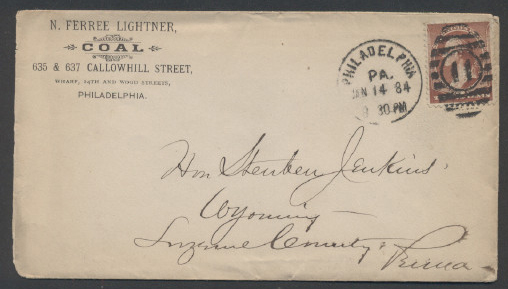 N. FERREE LIGHTNER,
COAL
635 & 637 CALLOWHILL STREET,
WHARF, 24TH AND WOOD STREETS,
PHILADELPHIA.
PHILADELPHIA
PA.
JAN 14 84
9 30 PM
11
Hon Steuben Jenkins
Wyoming
Luzerne County
Penna